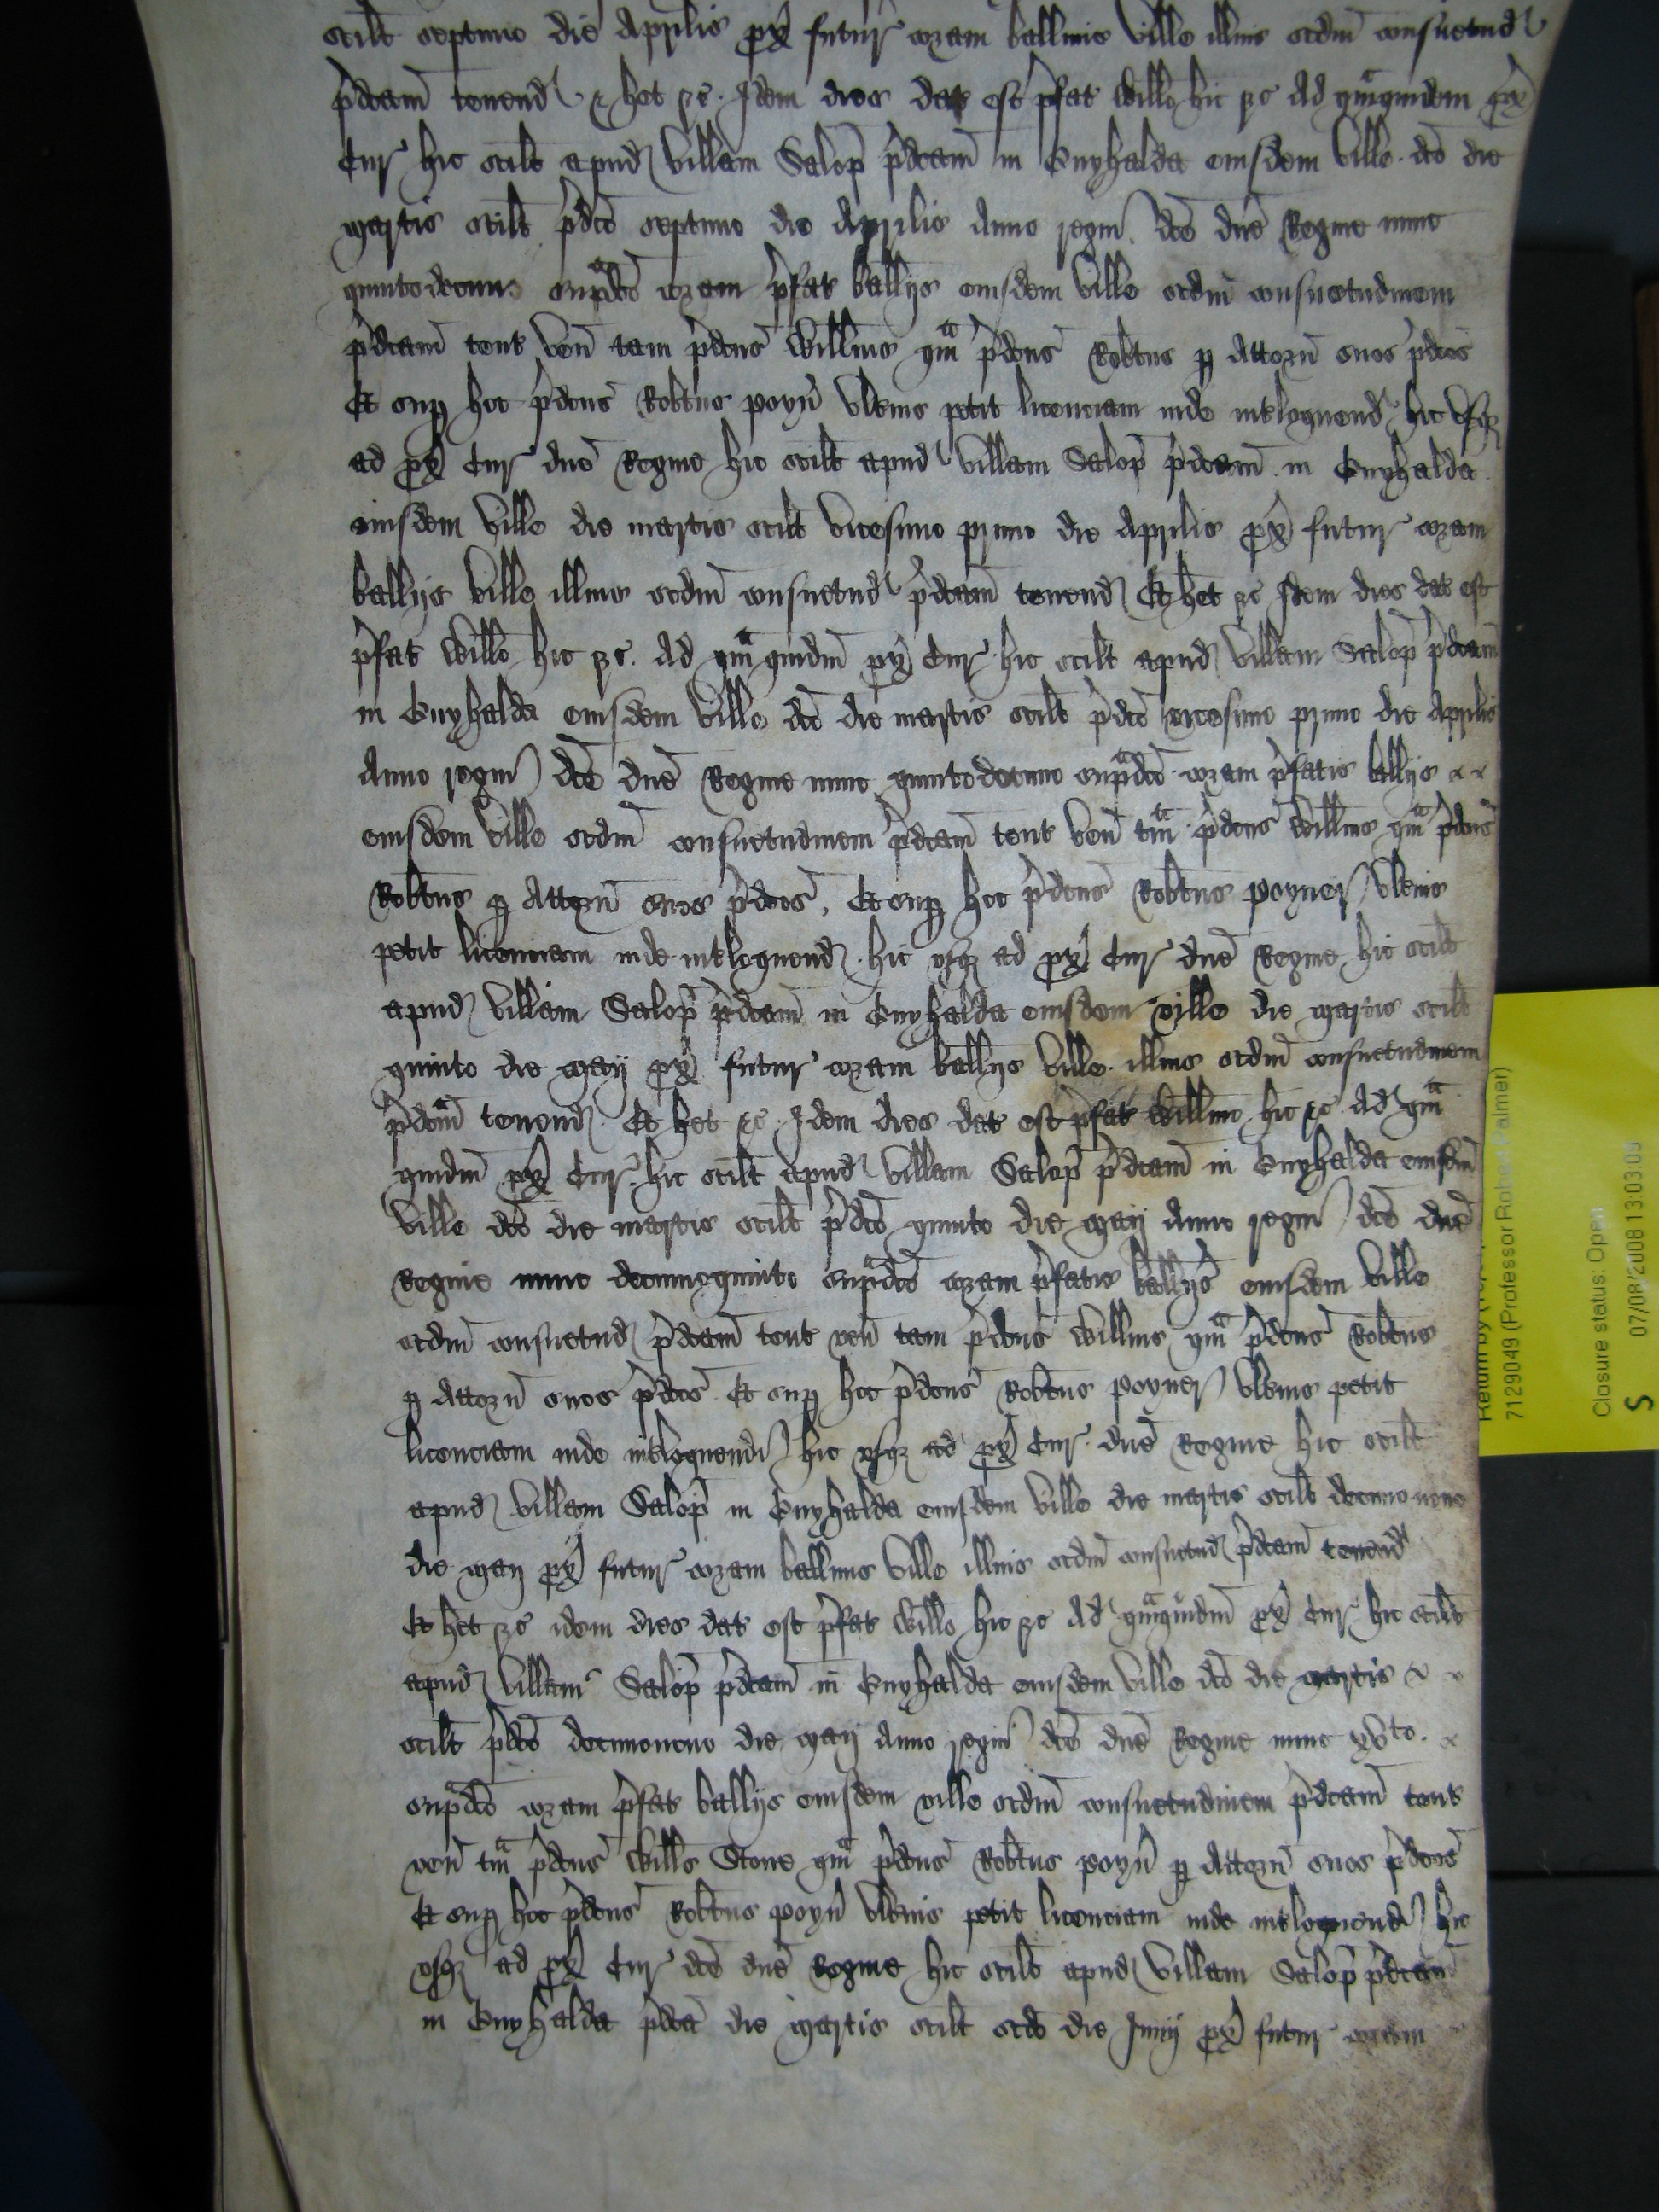 scilt septimo die Aprilis px̄ futur coram ballivis ville illius scdm̄ consuetud
p̄dcam̄ tenend & het &c. Idem dies dat est p̄fat Willo hic &c Ad quāquidem px̄
Cur hic scilt apud villam Salop̄ p̄dcam̄ in Guyhalda eiusdem ville dc̄o die
martis scilt p̄dc̄o septimo die Aprilis Anno regni dc̄e dn̄e Regine nunc
quintodecimo sup̄adc̄o coram p̄fat ballijs eiusdem ville scdm̄ consuetudinem
p̄dcam̄ tent ven̄ tam p̄dcus̄ Willms qm̄ p̄dcus̄ Robtus p Attorn̄ suos p̄dcos̄
Et sup hoc p̄dcus̄ Robtus poyn̄ ulterius petit licenciam inde interloquend hic usq
ad px̄ Cur dn̄e Regine hic scilt apud villam Salop̄ p̄dcam̄ in Guyhalda
eiusdem ville die martis scilt vicesimo primo die Aprilis px̄ futur coram
ballijs ville illius scdm̄ consuetud p̄dcam̄ tenend Et het &c Idem dies dat est
p̄fat Willo hic &c. Ad qm̄ quidm̄ px̄ Cur hic scilt apud villam Salop̄ p̄dcam̄
in Guyhalda eiusdem ville dc̄o die martis scilt p̄dc̄o vicesimo primo die Aprilis
Anno regni dc̄e dn̄e Regine nunc quintodecimo sup̄adc̄o coram p̄fatis ballijs x x
eiusdem ville scdm̄ consuetudinem p̄dcam̄ tent ven̄ tm̄ p̄dcus̄ Willms qm̄ p̄dcus̄
Robtus p Attorn̄ suos p̄dcos̄. Et sup hoc p̄dcus̄ Robtus poyner ulterius
petit licenciam inde interloquend hic usq ad px̄ Cur dn̄e Regine hic scilt
apud villam Salop̄ p̄dcam̄ in Guyhalda eiusdem ville die martis scilt
quinto die maij px̄ futur coram ballijs ville illius scdm̄ consuetudinem
p̄dcm̄ tenend. Et het &c. Idem dies dat est p̄fat Willmo hic &c Ad qm̄
quidm̄ px̄ Cur hic scilt apud villam Salop̄ p̄dcam̄ in Guyhalda eiusdm̄
ville dc̄o die martis scilt p̄dc̄o quinto die maij Anno regni dc̄e dn̄e
Regine nunc decimoquinto sup̄adc̄o coram p̄fatis ballijs eiusdem ville
scdm̄ consuetud p̄dcam̄ tent ven̄ tam p̄dcus̄ Willms qm̄ p̄dcus̄ Robtus
p Attorn̄ suos p̄dcos̄ Et sup hoc p̄dcus̄ Robtus poyner ulterius petit
licenciam inde interloquend hic usq ad px̄ Cur dn̄e Regine hic scilt
apud villam Salop̄ in Guyhalda eiusdem ville die martis scilt decimonono
die maij px̄ futur coram ballivis ville illius scdm̄ consuetud p̄dcam̄ tenend
Et het &c idem dies dat est p̄fat Willo hic &c Ad qm̄quidm̄ px̄ Cur hic scilt
apud villam Salop̄ p̄dcam̄ in Guyhalda eiusdem ville dc̄o die martis x x
scilt p̄dc̄o decimonono die maij Anno regni dc̄e dn̄e Regine nunc xvto. x
sup̄adc̄o coram p̄fat ballijs eiusdem ville scdm̄ consuetudinem p̄dcam̄ tent
ven̄ tm̄ p̄dcus̄ Wills Stone qm̄ p̄dcus̄ Robtus poyn̄ p Attorn̄ suos p̄dcos̄
Et sup hoc p̄dcus̄ Robtus poyn̄ ulterius petit licenciam inde interloquend hic
usq ad px̄ Cur dc̄e dn̄e Regine hic scilt apud villam Salop̄ p̄dcam̄
in Guyhalda p̄dca̅ die martis scilt scdo die Junij px̄ futur coram
Return by
7129049 (Professor Robert Palmer)
Closure status: Open
S 07/08/2008 13:03:03